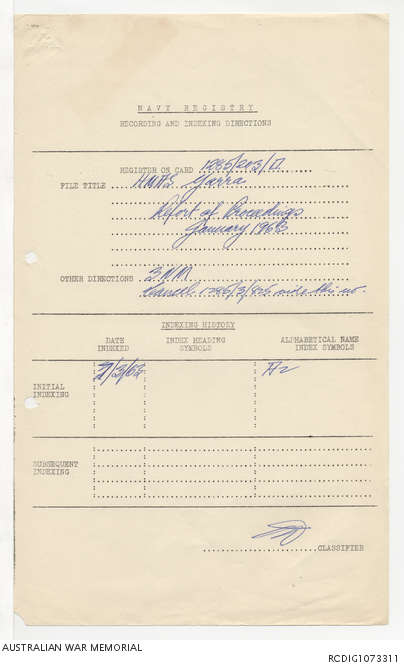 NAVY REGISTRY
RECORDING AND INDEXING DIRECTIONS
REGISTER ON CARD 1285/203/
FILE TITLE HMAS Yarra
Report of Proceedings
January 1963
OTHER DIRECTIONS
Cancel vide this no.
INDEXING HISTORY
DATE INDEXED
INDEX HEADING SYMBOLS
ALPHABETICAL NAME INDEX SYMBOLS
INITIAL INDEXING
SUBSEQUENT INDEXING
CLASSIFIER
AUSTRALIAN WAR MEMORIAL
RCDIG1073311